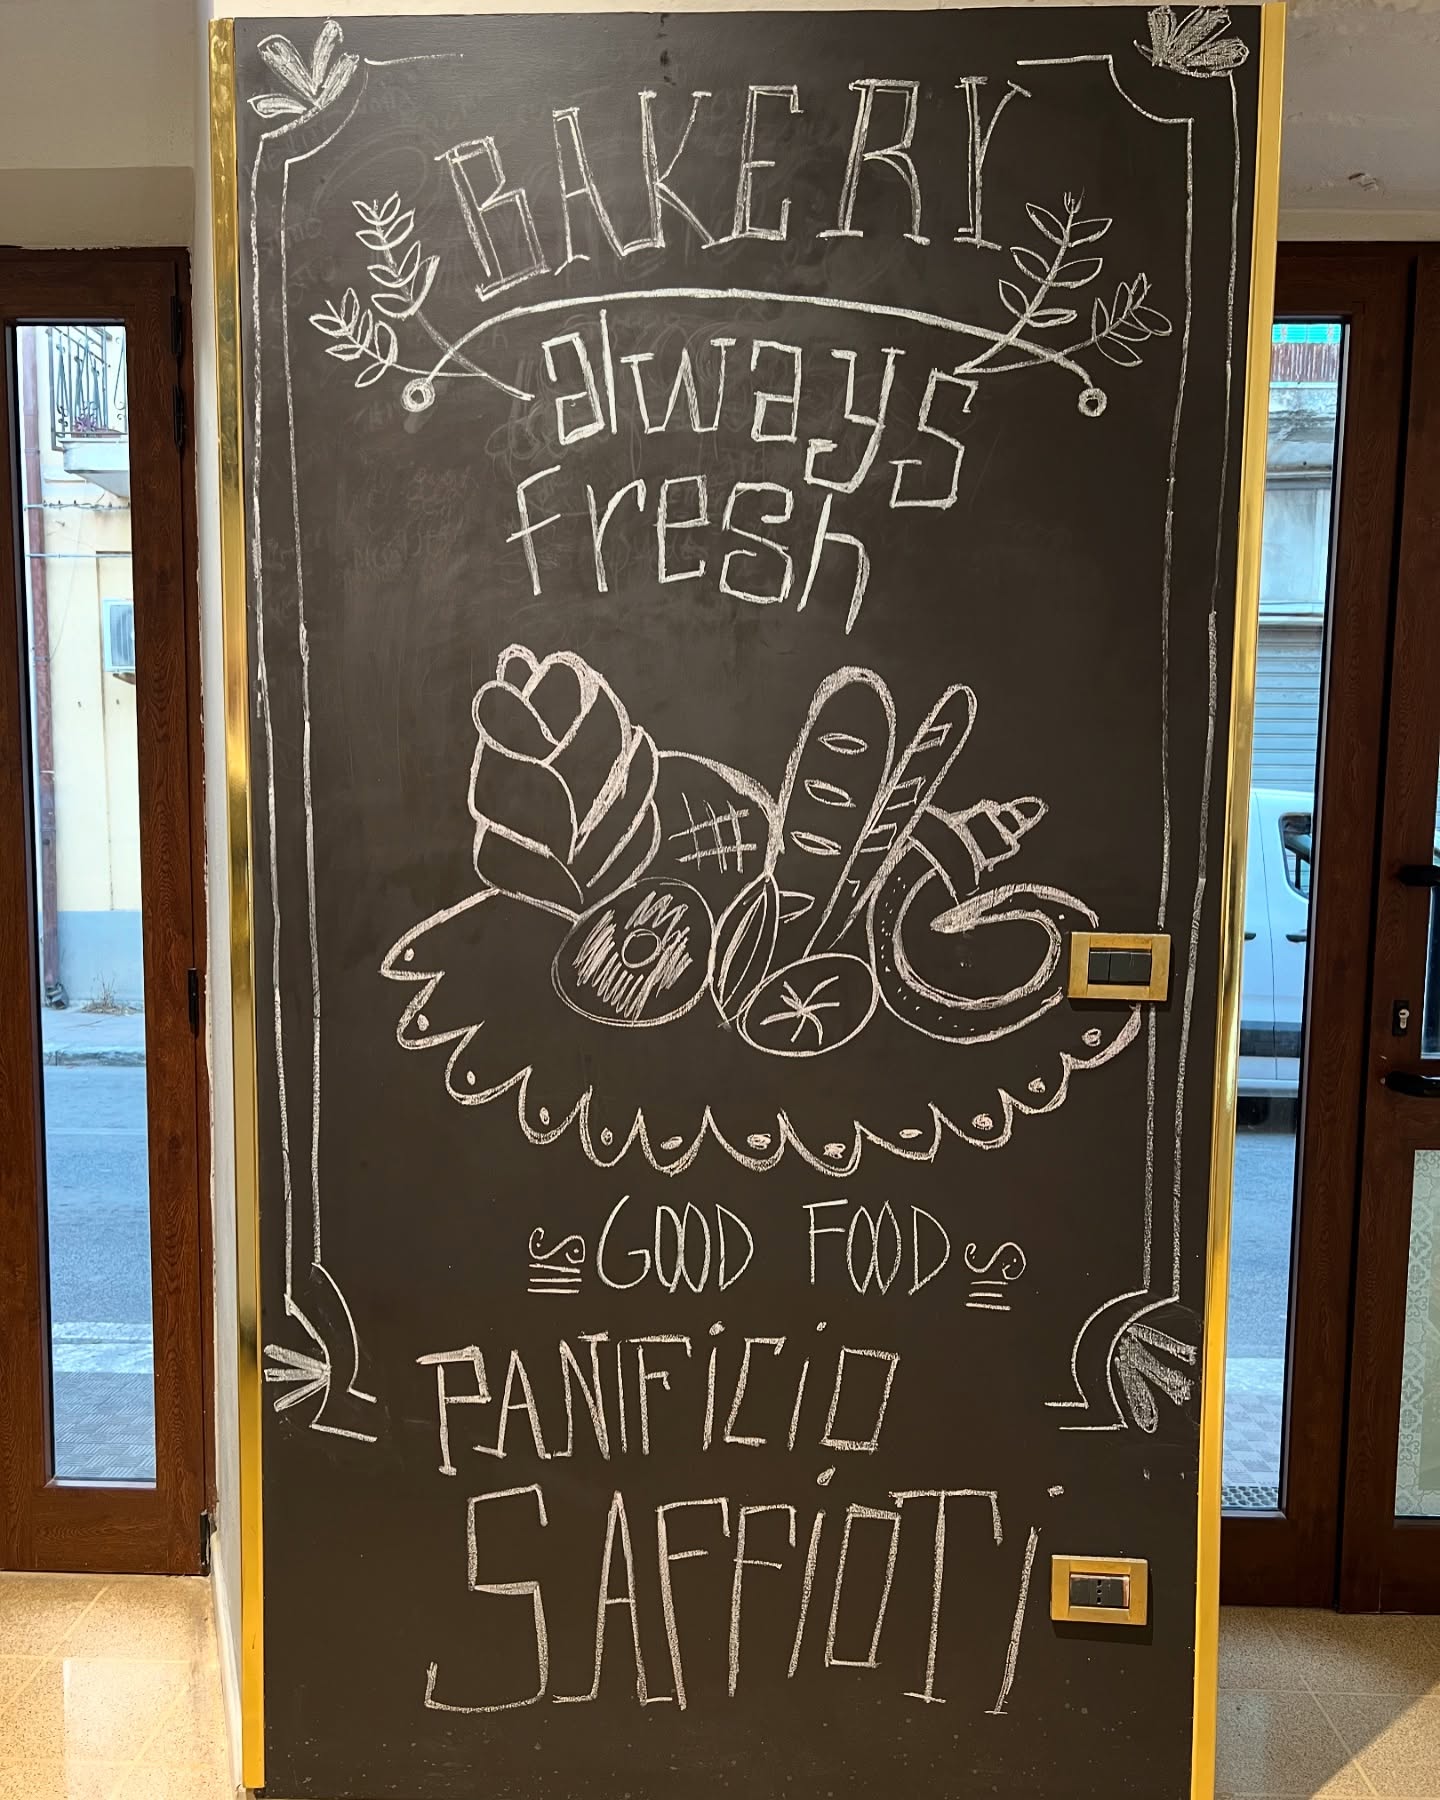 BAKERY
always
fresh
GOOD FOOD
PANIFiCiO
SAFFiOTi